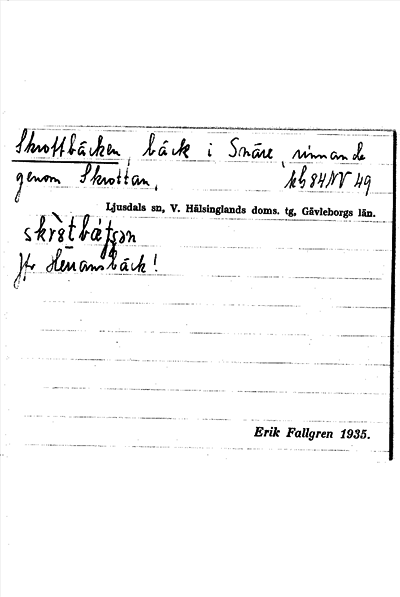 Skrottbäcken, bäck i Snäre, rinnande
genom Skrottan.
Ljusdals sn, V. Hälsinglands doms. tg, Gävleborgs län.
Jfr Hermansbäck!
Erik Fallgren 1935.